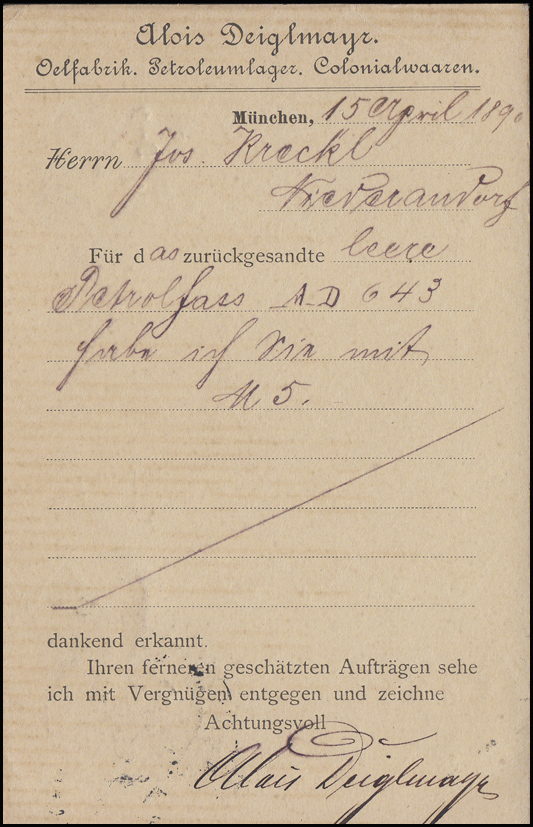 Alois Deiglmayr.
Oelfabrik. Petroleumlager. Colonialwaaren.
München, 15 April 1890
Herrn Jos. Kreckl
Niederandorf
Für das zurückgesandte leere
Petrolfass A-D 643
habe ich Sie mit
M 5.
dankend erkannt.
Ihren ferneren geschätzten Aufträgen sehe
ich mit Vergnügen entgegen und zeichne
Achtungsvoll
Alois Deiglmayr